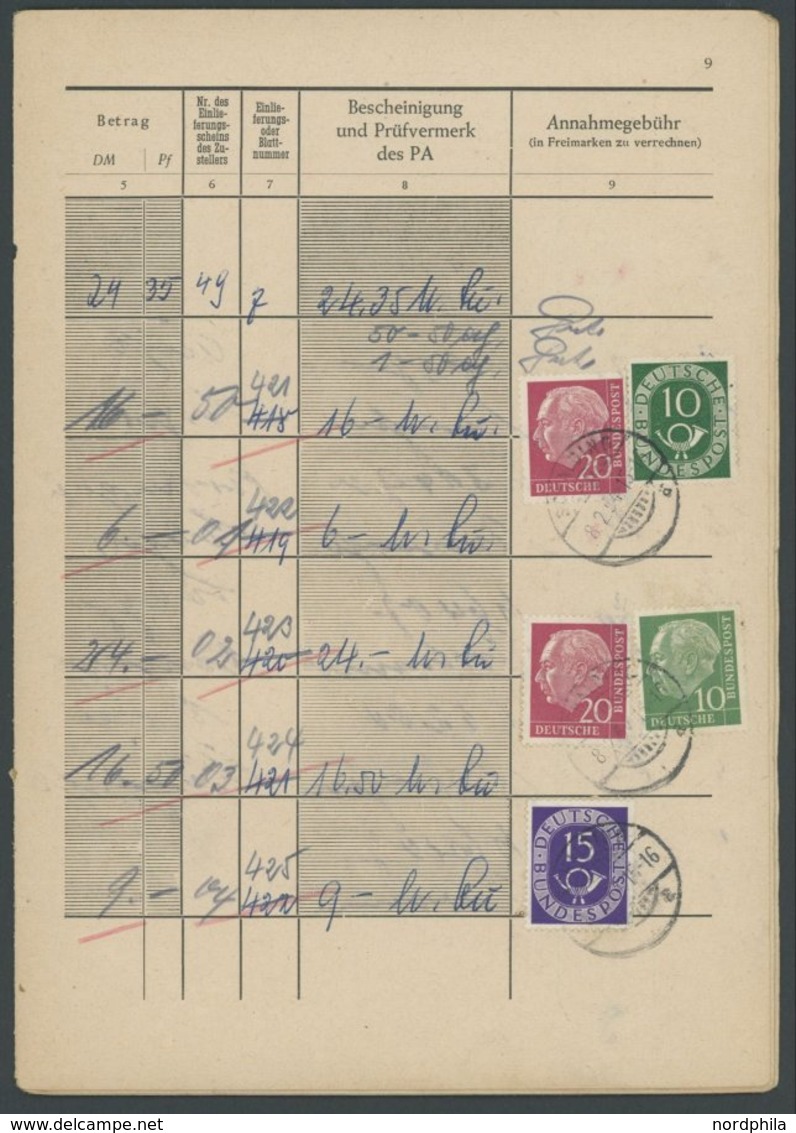 9
Betrag
DM Pf
Nr. des
Einlie-
ferungs-
scheins
des Zu-
stellers
Einlie-
ferungs-
oder
Blatt-
nummer
Bescheinigung
und Prüfvermerk
des PA
Annahmegebühr
(in Freimarken zu verrechnen)
5 6 7 8 9
24 35 49 7 24,35
50 - 50
1 - 50
421
16.- 50 418 16 -
422
6.- 01 419 6 -
423
24.- 02 420 24.-
424
16.50 03 421 16.50
425
9.- 04 422 9 -
20
DEUTSCHE
BUNDESPOST
DEUTSCHE
10
BUNDESPOST
20
DEUTSCHE
BUNDESPOST
10
DEUTSCHE
BUNDESPOST
DEUTSCHE
15
BUNDESPOST
nordphila